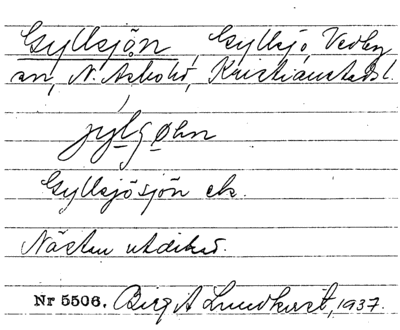 Gyllsjön, Gyllsjö, Vedby
sn, N. Åsbohd, Kristianstads l.
jylʃøn
Gyllsjösjön ek.
Nästan utdikad.
Nr 5506. Birgit Lundkvist, 1937.